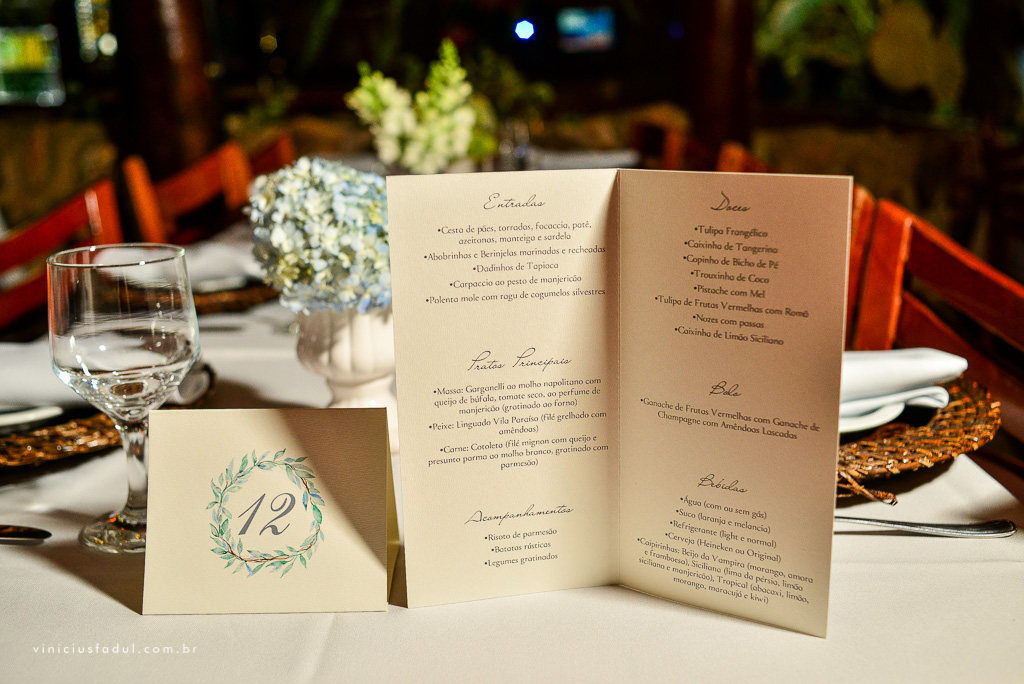 12
Entradas
•Cesta de pães, torradas, focaccia, patê,
azeitonas, manteiga e sardela
•Abobrinhas e Berinjelas marinadas e recheadas
•Dadinhos de Tapioca
•Carpaccio ao pesto de manjericão
•Polenta mole com ragu de cogumelos silvestres
Pratos Principais
•Massa: Garganelli ao molho napolitano com
queijo de búfala, tomate seco, ao perfume de
manjericão (gratinado ao forno)
•Peixe: Linguado Vila Paraíso (filé grelhado com
amêndoas)
•Carne: Cotoleta (filé mignon com queijo e
presunto parma ao molho branco, gratinado com
parmesão)
Acompanhamentos
•Risoto de parmesão
•Batatas rústicas
•Legumes gratinados
Doces
•Tulipa Frangélico
•Caixinha de Tangerino
•Copinho de Bicho de Pé
•Trouxinha de Coco
•Pistache com Mel
•Tulipa de Frutas Vermelhas com Romã
•Nozes com passas
•Caixinha de Limão Siciliano
Bolo
•Ganache de Frutas Vermelhas com Ganache de
Champagne com Amêndoas Lascadas
Bebidas
•Água (com ou sem gás)
•Suco (laranja e melancia)
•Refrigerante (light e normal)
•Cerveja (Heineken ou Original)
•Caipirinhas: Beijo da Vampira (morango, amora
e framboesa), Siciliano (lima da pérsia, limão
siciliano e manjericão), Tropical (abacaxi, limão,
morango, maracujá e kiwi)
viniciusfadul.com.br